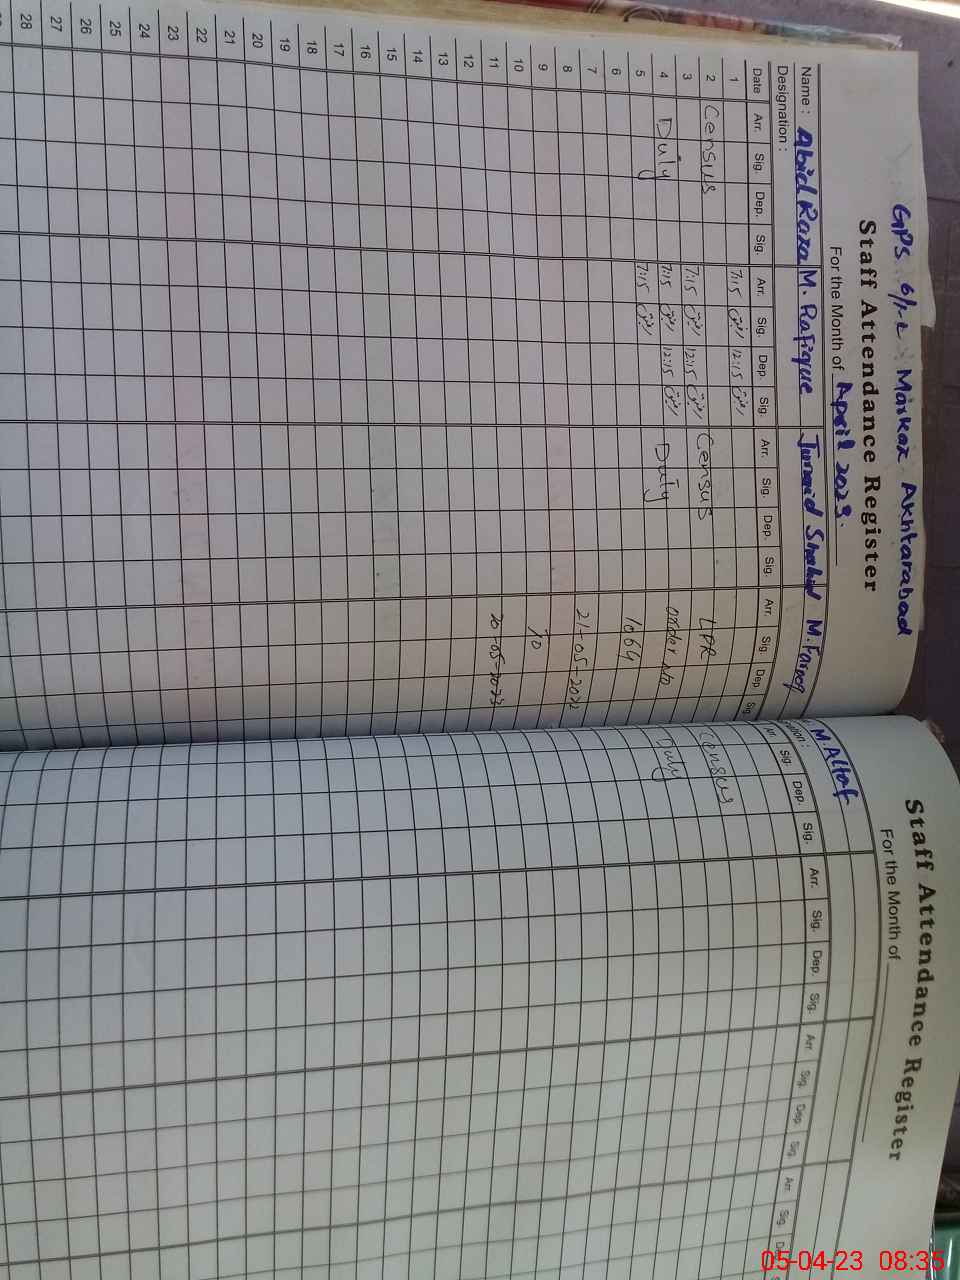 GPS 6/1-L Markaz Akhtarabad
Staff Attendance Register
For the Month of April 2023.
Name : Abid Raza M. Rafique Junaid Shahid M. Farooq
Designation :
Date Arr. Sig. Dep. Sig. Arr. Sig. Dep. Sig. Arr. Sig. Dep. Sig. Arr. Sig Dep. Sig.
1 7:15 رفیق 12:15 رفیق
2 Census Census LPR
3 7:15 رفیق 12:15 رفیق
4 Duty 7:15 رفیق 12:15 رفیق Duty order No
5 7:15 رفیق 1664
6
7 21-05-2022
8
9 To
10
11 20-05-2023
12
13
14
15
16
17
18
19
20
21
22
23
24
25
26
27
28
Staff Attendance Register
For the Month of
M. Altaf
Arr. Sig. Dep. Sig. Arr. Sig. Dep. Sig. Arr. Sig. Dep. Sig. Arr. Sig.
Census
Duty
05-04-23 08:35